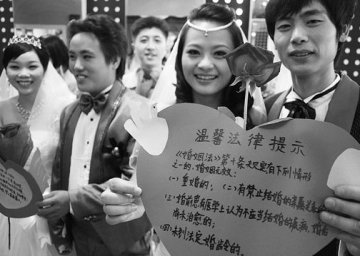 温馨法律提示
《婚姻法》第十条规定有下列情形
之一的，婚姻无效：
（一）重婚的；（二）有禁止结婚的亲属关系的
（三）婚前患有医学上认为不应当结婚的疾病，婚后
尚未治愈的；
（四）未到法定婚龄的。